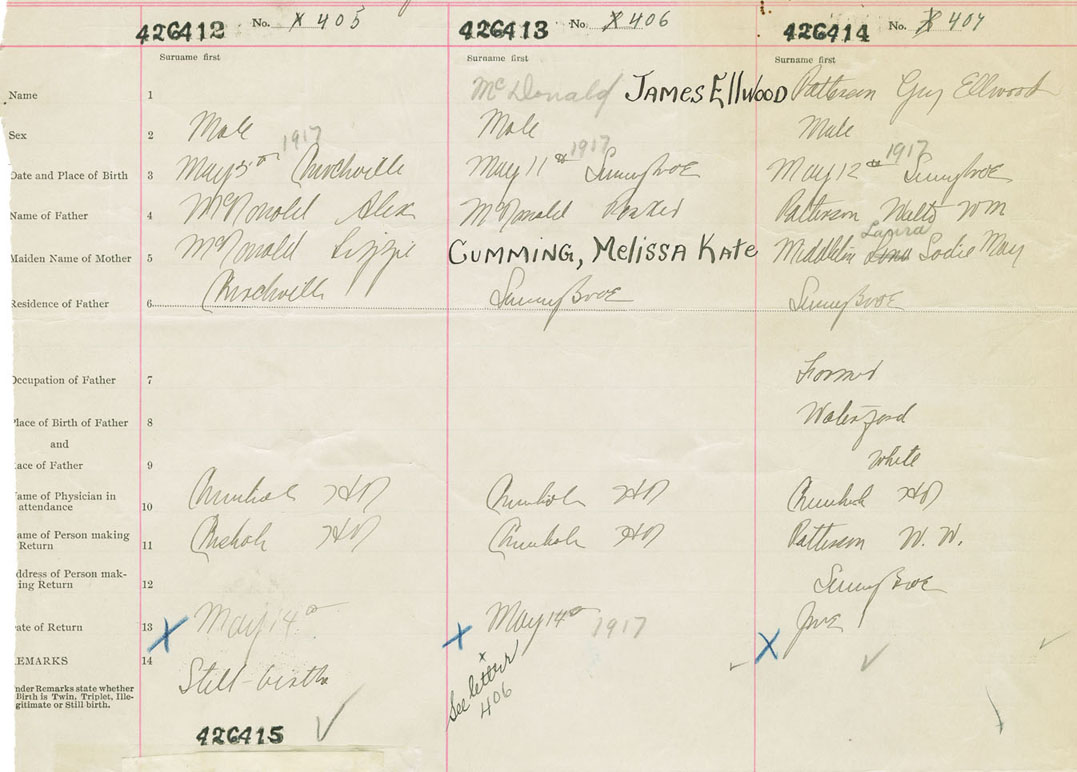 426412 No. X 405 426413 No. X 406 426414 No. X 407
Surname first Surname first Surname first
Name 1 McDonald JAMES EllWOOD Patterson Guy Ellwood
Sex 2 Male Male Male
1917 1917 1917
Date and Place of Birth 3 May 5th Churchville May 11th Sunnybrae May 12th Sunnybrae
Name of Father 4 McDonald Alex McDonald Patterson Walter Wm
Laura
Maiden Name of Mother 5 McDonald Lizzie CUMMING, Melissa Kate Sadie May
Residence of Father 6 Churchville Sunnybrae Sunnybrae
Occupation of Father 7 Farmer
Place of Birth of Father 8 Waterford
and
ace of Father 9 White
ame of Physician in
attendance 10
ame of Person making
Return 11 Patterson W. W.
ddress of Person mak-
ing Return 12 Sunnybrae
ate of Return 13 X May 14th X May 14th 1917 X June
EMARKS 14 Still-birth See letter 406
nder Remarks state whether
Birth is Twin, Triplet, Ille-
gitimate or Still birth.
426415